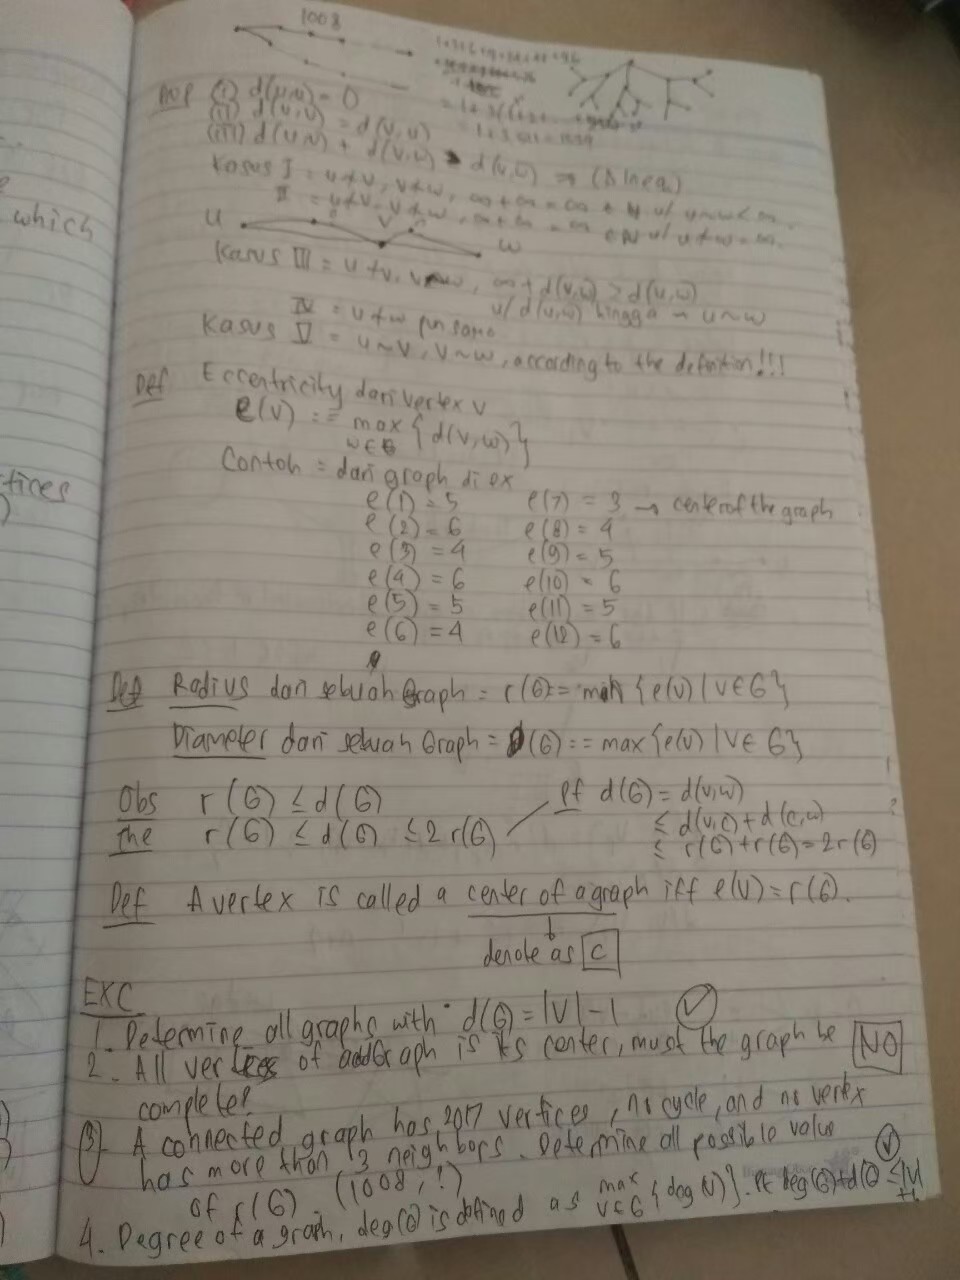 1008
Prop (i) d(u,u) = 0
(ii) d(u,v) = d(v,u)
(iii) d(u,v) + d(v,w) ≥ d(u,w) → (Δ ineq)
Kasus I = u≁v, v≁w, ∞ + ∞ = ∞
II = ∞ + ∞ = ∞
u v w
Kasus III = u≁v, v~w, ∞ + d(v,w) ≥ d(u,w)
u/ d(u,w) hingga u~w
IV = v≁w pun sama
Kasus V = u~v, v~w, according to the definition!!!
Def Eccentricity dari vertex v
e(v) := max {d(v,w)}
w∈G
Contoh = dari graph di ex
e(1) = 5 e(7) = 3 → center of the graph
e(2) = 6 e(8) = 4
e(3) = 4 e(9) = 5
e(4) = 6 e(10) = 6
e(5) = 5 e(11) = 5
e(6) = 4 e(12) = 6
Def Radius dari sebuah Graph = r(G) := min {e(v) | v∈G}
Diameter dari sebuah Graph = d(G) := max {e(v) | v∈G}
Obs r(G) ≤ d(G)
The r(G) ≤ d(G) ≤ 2r(G)
Pf d(G) = d(v,w)
≤ d(v,c) + d(c,w)
≤ r(G) + r(G) = 2r(G)
Def A vertex is called a center of a graph iff e(v) = r(G).
denote as C
EXC
1. Determine all graphs with d(G) = |V| - 1
2. All vertices of a Graph is its center, must the graph be NO
complete?
3. A connected graph has 2017 vertices, no cycle, and no vertex
has more than 3 neighbors. Determine all possible value
of r(G) (1008, !)
4. Degree of a graph, deg(G) is defined as max {deg(v)}. Pf deg(G) + d(G) ≤ |V|
v∈G
+1
which
tices